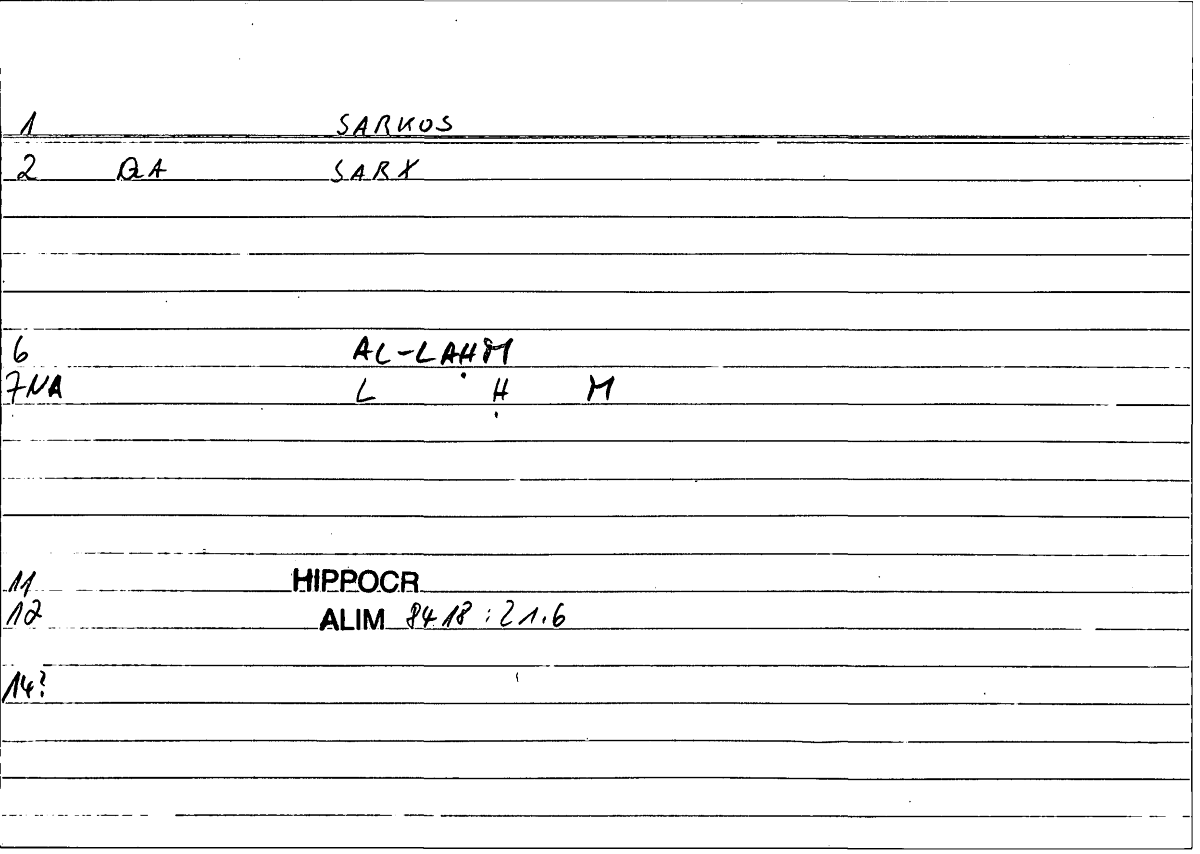 1 SARKOS
2 QA SARX
6 AL-LAḤM
7NA L Ḥ M
11 HIPPOCR
12 ALIM 84.18:21.6
14?